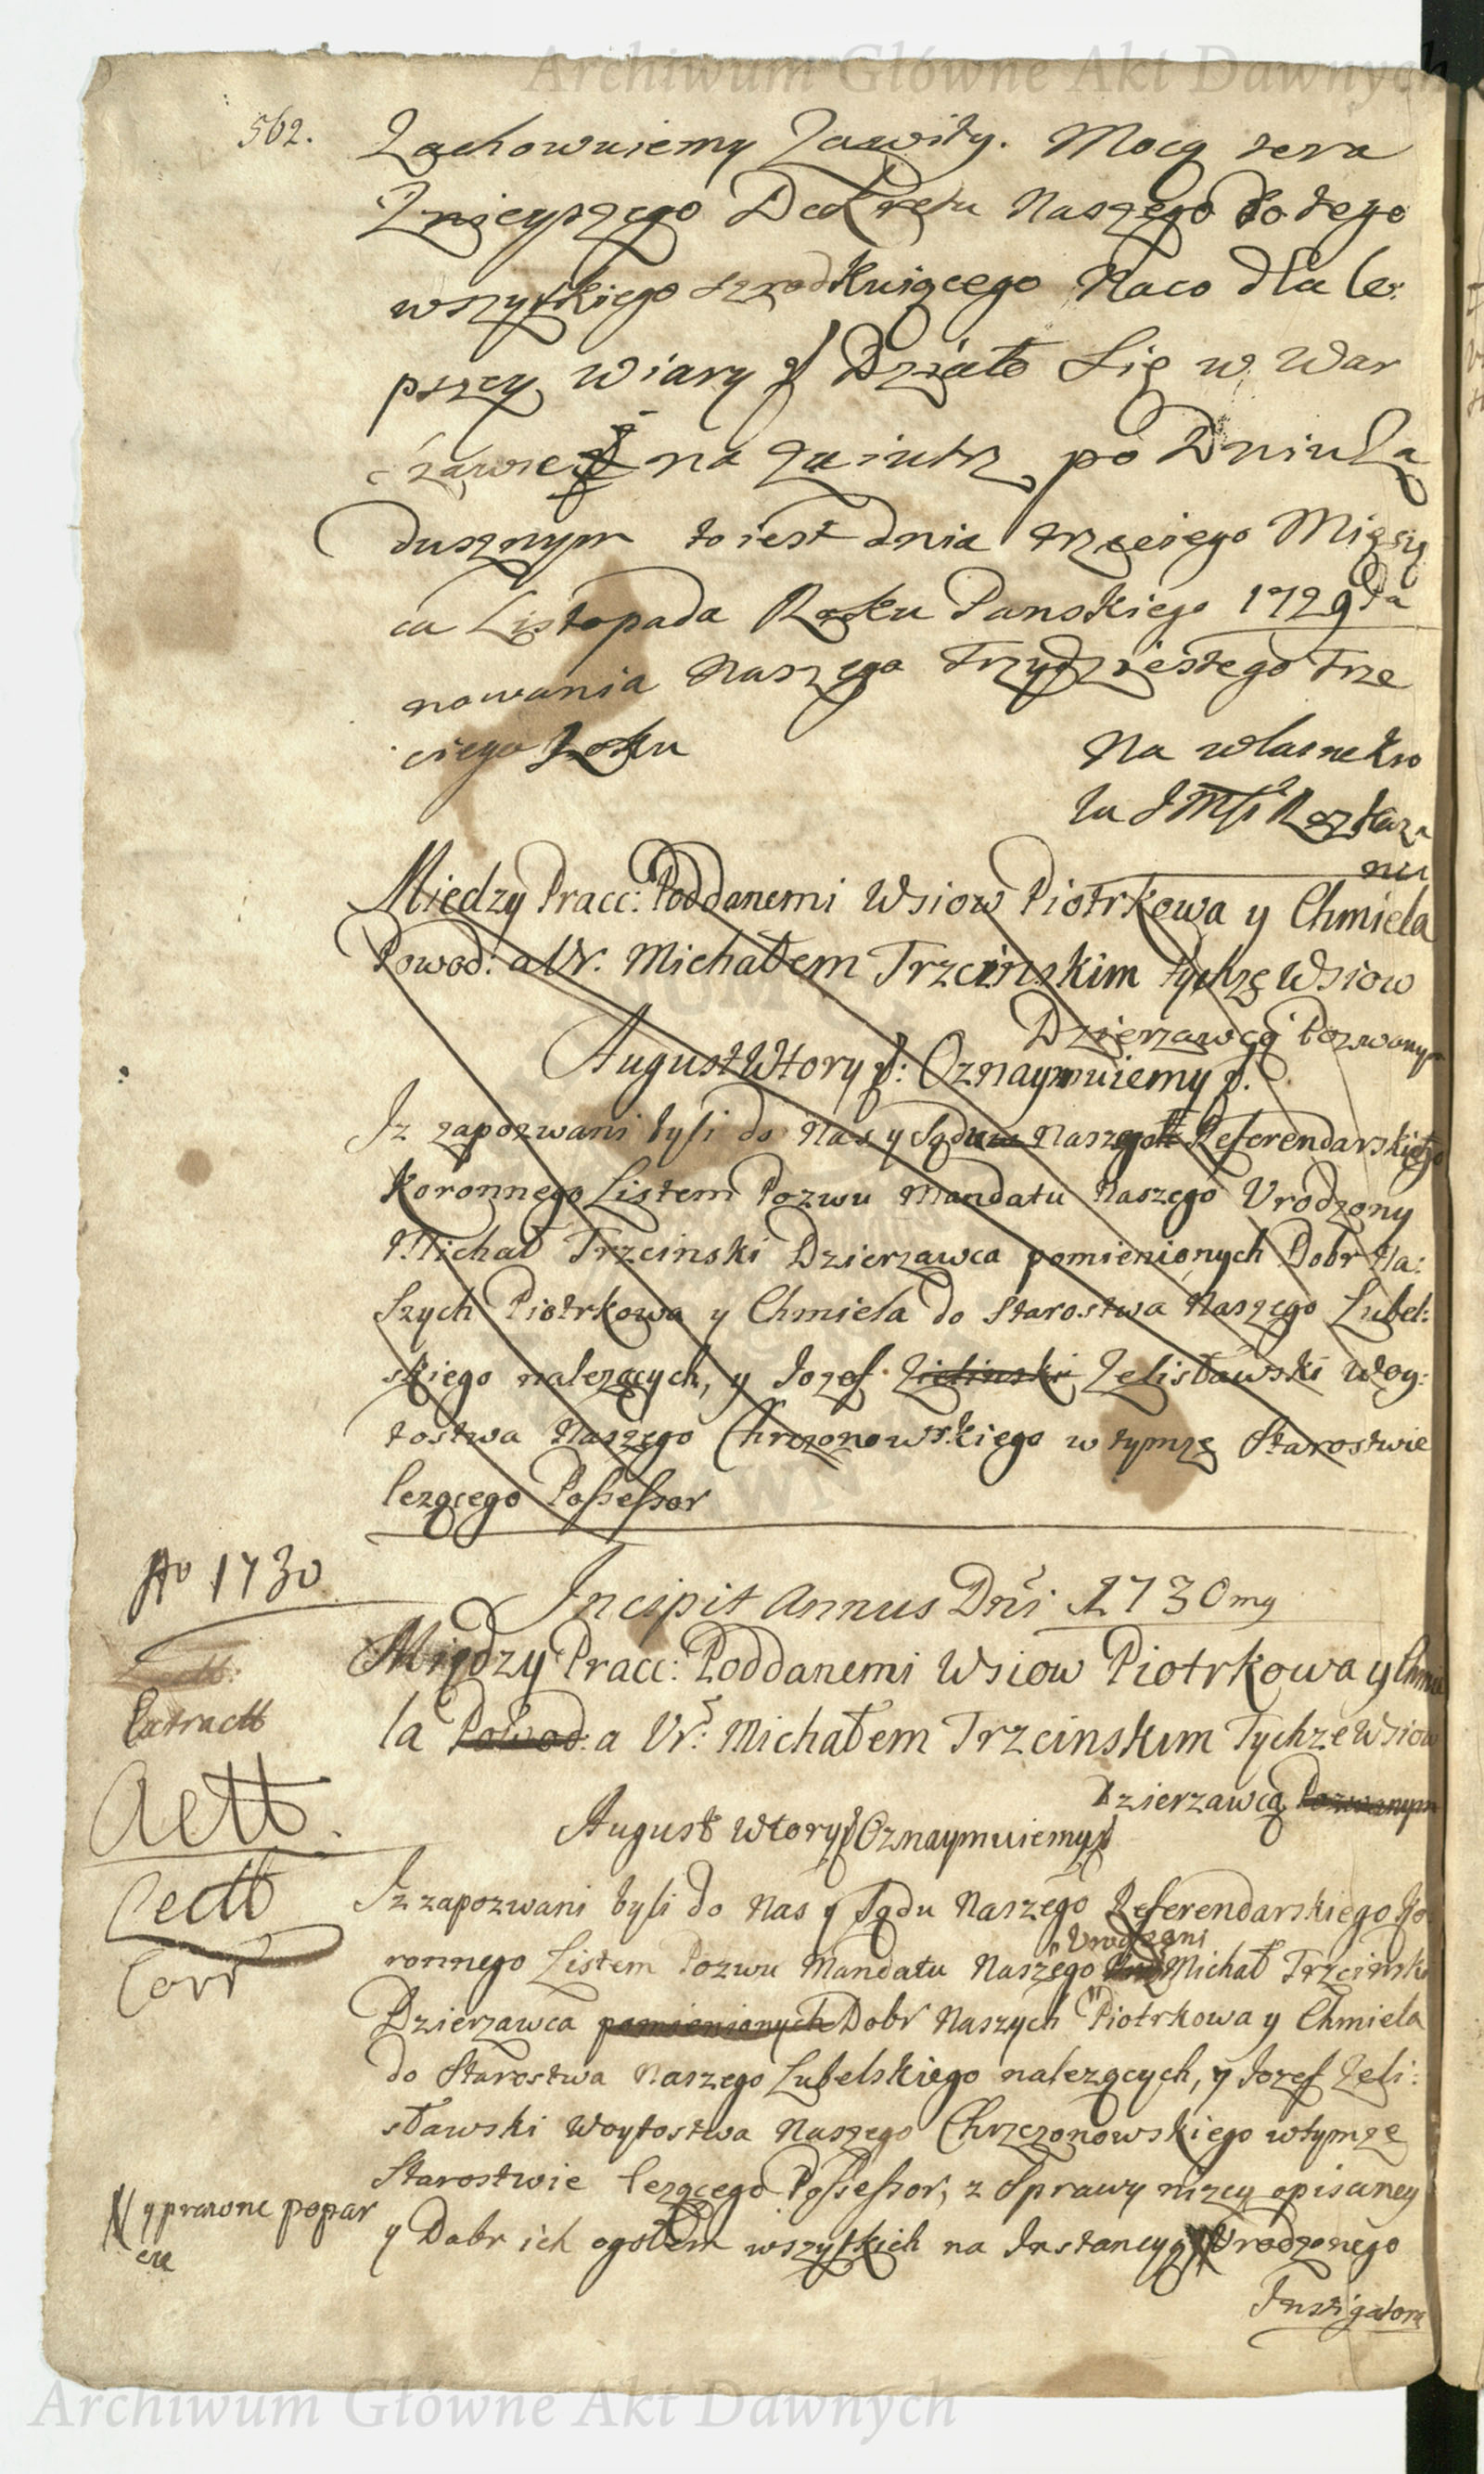 Archiwum Główne Akt Dawnych
562.
Zachowuiemy Zawity. Mocą tera
znieyszego Dekretu Naszego do tego
wszystkiego szrodkuiącego Naco dla le:
pszey wiary Działo Się w War
szawie na zaiutrz po Dniu Za
dusznym to iest dnia trzeciego Miesią
ca Listopada Roku Panskiego 1729 Pa
nowania Naszego Trzydziestego Trze
ciego Roku
Na własne Kro
la JMsci Rozkaza
nie
Miedzy Pracc: Poddanemi Wsiow Piotrkowa y Chmiela
Powod: a Ur. Michałem Trzcinskim tychze Wsiow
Dzierzawcą Pozwanym
August Wtory: Oznaymuiemy
Iz zapozwani byli do Nas y Sądu Naszego Referendarskiego
Koronnego Listem Pozwu Mandatu Naszego Urodzony
Michał Trzcinski Dzierzawca pomienionych Dobr Na:
szych Piotrkowa y Chmiela do Starostwa Naszego Lubel:
skiego nalezących, y Jozef Zielinski Zelisławski Woy:
tostwa Naszego Chrzczonowskiego w tymze Starostwie
lezącego Possessor
Ao 1730
Incipit Annus Dni 1730 mg
Między Pracc: Poddanemi Wsiow Piotrkowa y Chmie
la Powod: a Ur: Michałem Trzcinskim Tychze Wsiow
Extractt
Dzierzawcą Pozwanym
Actt
August Wtory Oznaymuiemy
Lectt
Iz zapozwani byli do Nas y Sądu Naszego Referendarskiego Ko
Urodzani
ronnego Listem Pozwu Mandatu Naszego Michał Trzcinski
Corr
Dzierzawca pomienionych Dobr Naszych Piotrkowa y Chmiela
do Starostwa Naszego Lubelskiego nalezących, y Jozef Zeli:
sławski Woytostwa Naszego Chrzczonowskiego wtymze
Starostwie lezącego Possessor, z Sprawy nizey opisaney
y prawne popar
cie
y Dobr ich ogołem wszystkich na Instancyą Urodzonego
Instigatora
Archiwum Główne Akt Dawnych